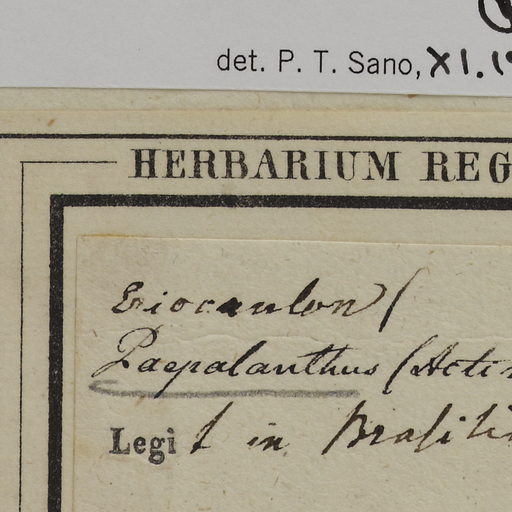 det. P. T. Sano, XI.19
HERBARIUM REG
Eriocaulon (
Paepalanthus (Acti
Legit in Brasili